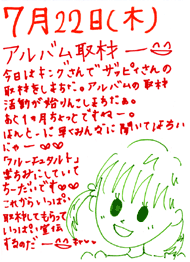 7月22日(木)
アルバム取材ー
今日はキングさんでザッピィさんの
取材をしました。アルバムの取材
活動が始りんこしましたぁ。
あと1ヶ月ちょっとですねー。
はんとーに早くみんなに聞いてよろちい
にゃー♡♡
「クルーチェ・タルト」
楽ちみにしていて
ちーだいです♡♡
これからいっぱい
取材してもらって
いっぱい宣伝
するのだー